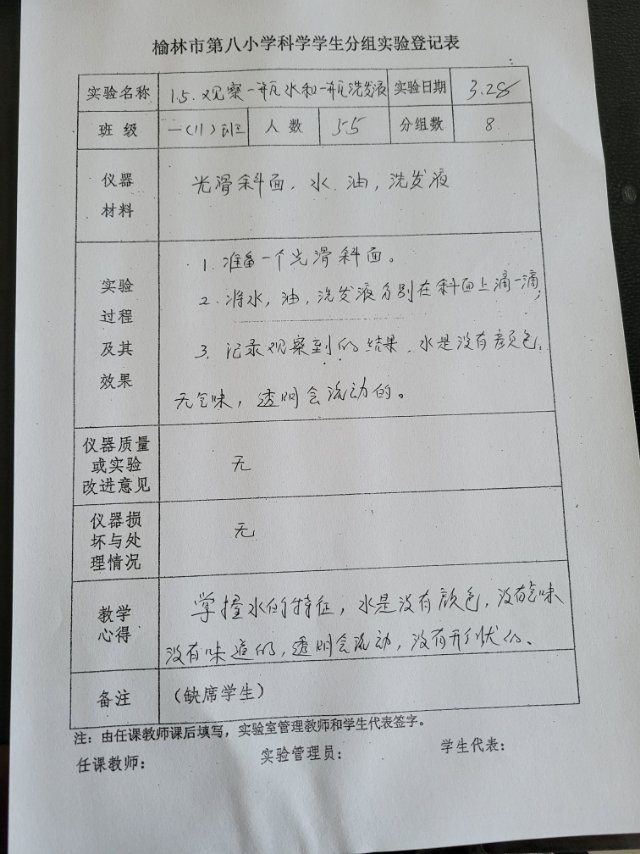 榆林市第八小学科学学生分组实验登记表
实验名称 1.5.观察一瓶水和一瓶洗发液 实验日期 3.28
班 级 一(11)班 人 数 55 分组数 8
仪器
材料
光滑斜面. 水. 油, 洗发液
实验
过程
及其
效果
1. 准备一个光滑斜面。
2. 将水, 油, 洗发液分别在斜面上滴一滴,
3. 记录观察到的结果, 水是没有颜色.
无气味, 透明会流动的。
仪器质量
或实验
改进意见
无
仪器损
坏与处
理情况
无
教学
心得
掌握水的特征, 水是没有颜色, 没有气味
没有味道的, 透明会流动, 没有形状的、
备注 (缺席学生)
注:由任课教师课后填写,实验室管理教师和学生代表签字。
任课教师: 实验管理员: 学生代表: